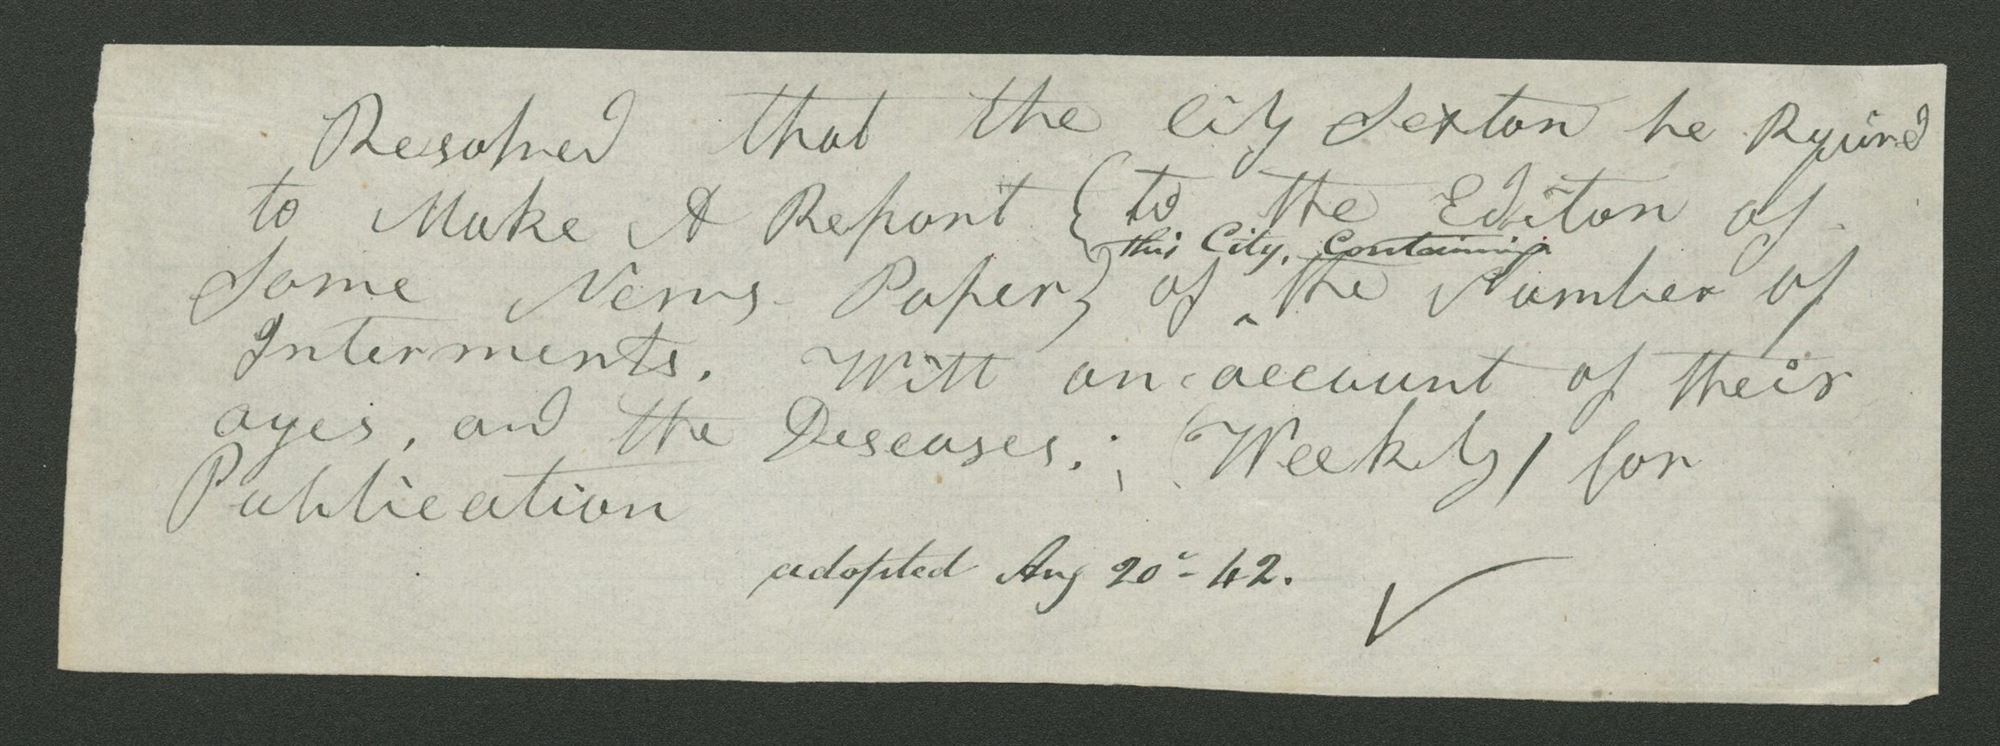 Resolved that the City Sexton be Rquired
to Make A Report { to the Editon of
this City, Containing
Some News-Paper } of the Number of
Interments. With an account of their
ages, and the Deseases.; (Weekly) for
Publication
adopted Aug 20th - 42.